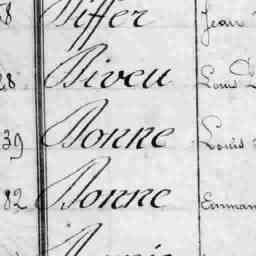 8 Differ Jean
28 Diveu Louis
39 Donne Louis
82 Donne Emman